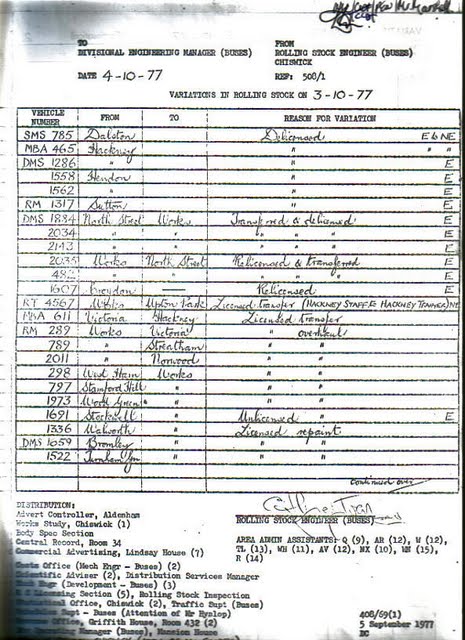 TO
DIVISIONAL ENGINEERING MANAGER (BUSES)
FROM
ROLLING STOCK ENGINEER (BUSES)
CHISWICK
DATE 4-10-77
REF: 508/1
VARIATIONS IN ROLLING STOCK ON 3-10-77
VEHICLE NUMBER FROM TO REASON FOR VARIATION
SMS 785 Dalston Delicensed E & NE
MBA 465 Hackney " " "
DMS 1286 " " E
1558 Hendon " E
1562 " " E
RM 1317 Sutton " E
DMS 1884 North Street Works Transferred & delicensed E
2034 " " " " " E
2143 " " " " " E
2035 Works North Street Relicensed & transferred E
482 " " " " " E
1607 Croydon —— Relicensed E
RT 4567 Works Upton Park Licensed transfer (HACKNEY STAFF & HACKNEY TRAINER) NE
MBA 611 Victoria Hackney Licensed transfer
RM 289 Works Victoria " overhaul
789 " Streatham " "
2011 " Norwood " "
298 West Ham Works " "
797 Stamford Hill " " "
1973 Wood Green " " "
1691 Stockwell " Unlicensed " E
1336 Walworth " Licensed repaint
DMS 1059 Bromley " " "
1522 Turnham Grn " " "
continued over
DISTRIBUTION:
Advert Controller, Aldenham
Works Study, Chiswick (1)
Body Spec Section
Central Record, Room 34
Commercial Advertising, Lindsay House (7)
Costs Office (Mech Engr - Buses) (2)
Scientific Adviser (2), Distribution Services Manager
Engr (Development - Buses) (3)
Licensing Section (5), Rolling Stock Inspection
Office, Chiswick (2), Traffic Supt (Buses)
Supt - Buses (Attention of Mr Hyslop)
Office, Griffith House, Room 432 (2)
Manager (Buses), Mansion House
ROLLING STOCK ENGINEER (BUSES)
AREA ADMIN ASSISTANTS: Q (9), AR (12), W (12),
TL (13), WH (11), AV (12), NX (10), WN (15),
R (14)
408/69(1)
5 September 1977
EC